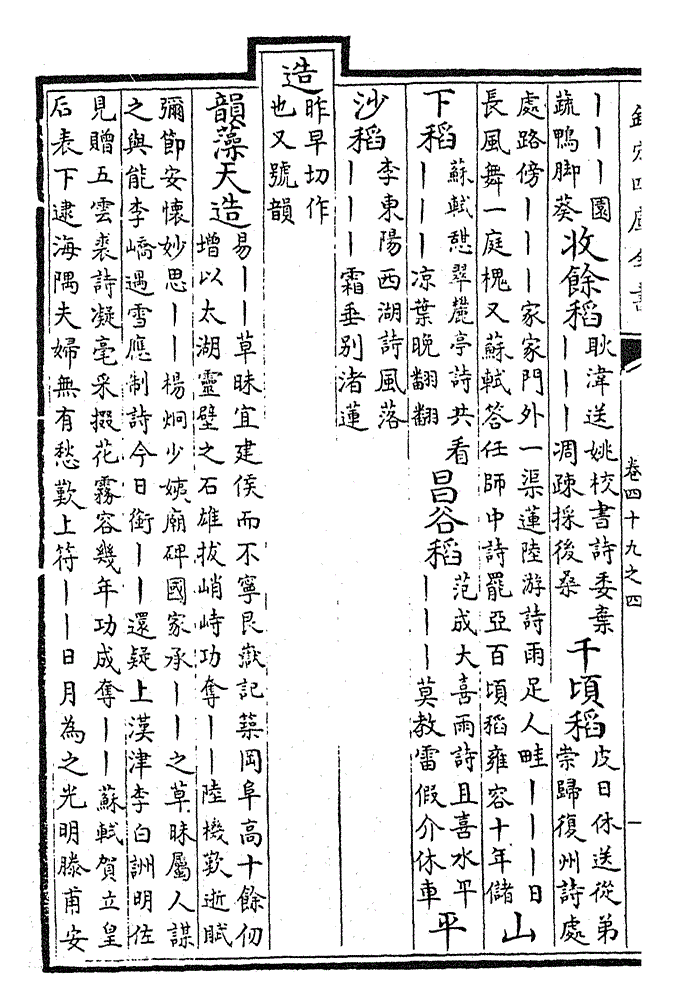 欽定四庫全書 卷四十九之四 一
丨丨丨園
蔬鴨脚葵
收餘稻
耿湋送姚校書詩委棄
丨丨丨凋疎採後桑
千頃稻
皮日休送從弟
崇歸復州詩處
處路傍丨丨丨家家門外一渠蓮陸游詩雨足人畦丨丨丨日
長風舞一庭槐又蘇軾答任師中詩罷亞百頃稻雍容十年儲
山
下稻
蘇軾憇翠麓亭詩共看
丨丨丨涼葉晚翻翻
昌谷稻
范成大喜雨詩且喜水平
丨丨丨莫教雷假介休車
平
沙稻
李東陽西湖詩風落
丨丨丨霜垂別渚蓮
造
昨早切作
也又號韻
韻藻天造
易丨丨草昧宜建侯而不寧艮嶽記築岡阜高十餘仞
增以太湖靈壁之石雄拔峭峙功奪丨丨陸機歎逝賦
彌節安懷妙思丨丨楊炯少姨廟碑國家承丨丨之草昧屬人謀
之與能李嶠遇雪應制詩今日銜丨丨還疑上漢津李白詶明佐
見贈五雲裘詩凝毫采掇花霧容幾年功成奪丨丨蘇軾賀立皇
后表下逮海隅夫婦無有愁歎上符丨丨日月為之光明滕甫安